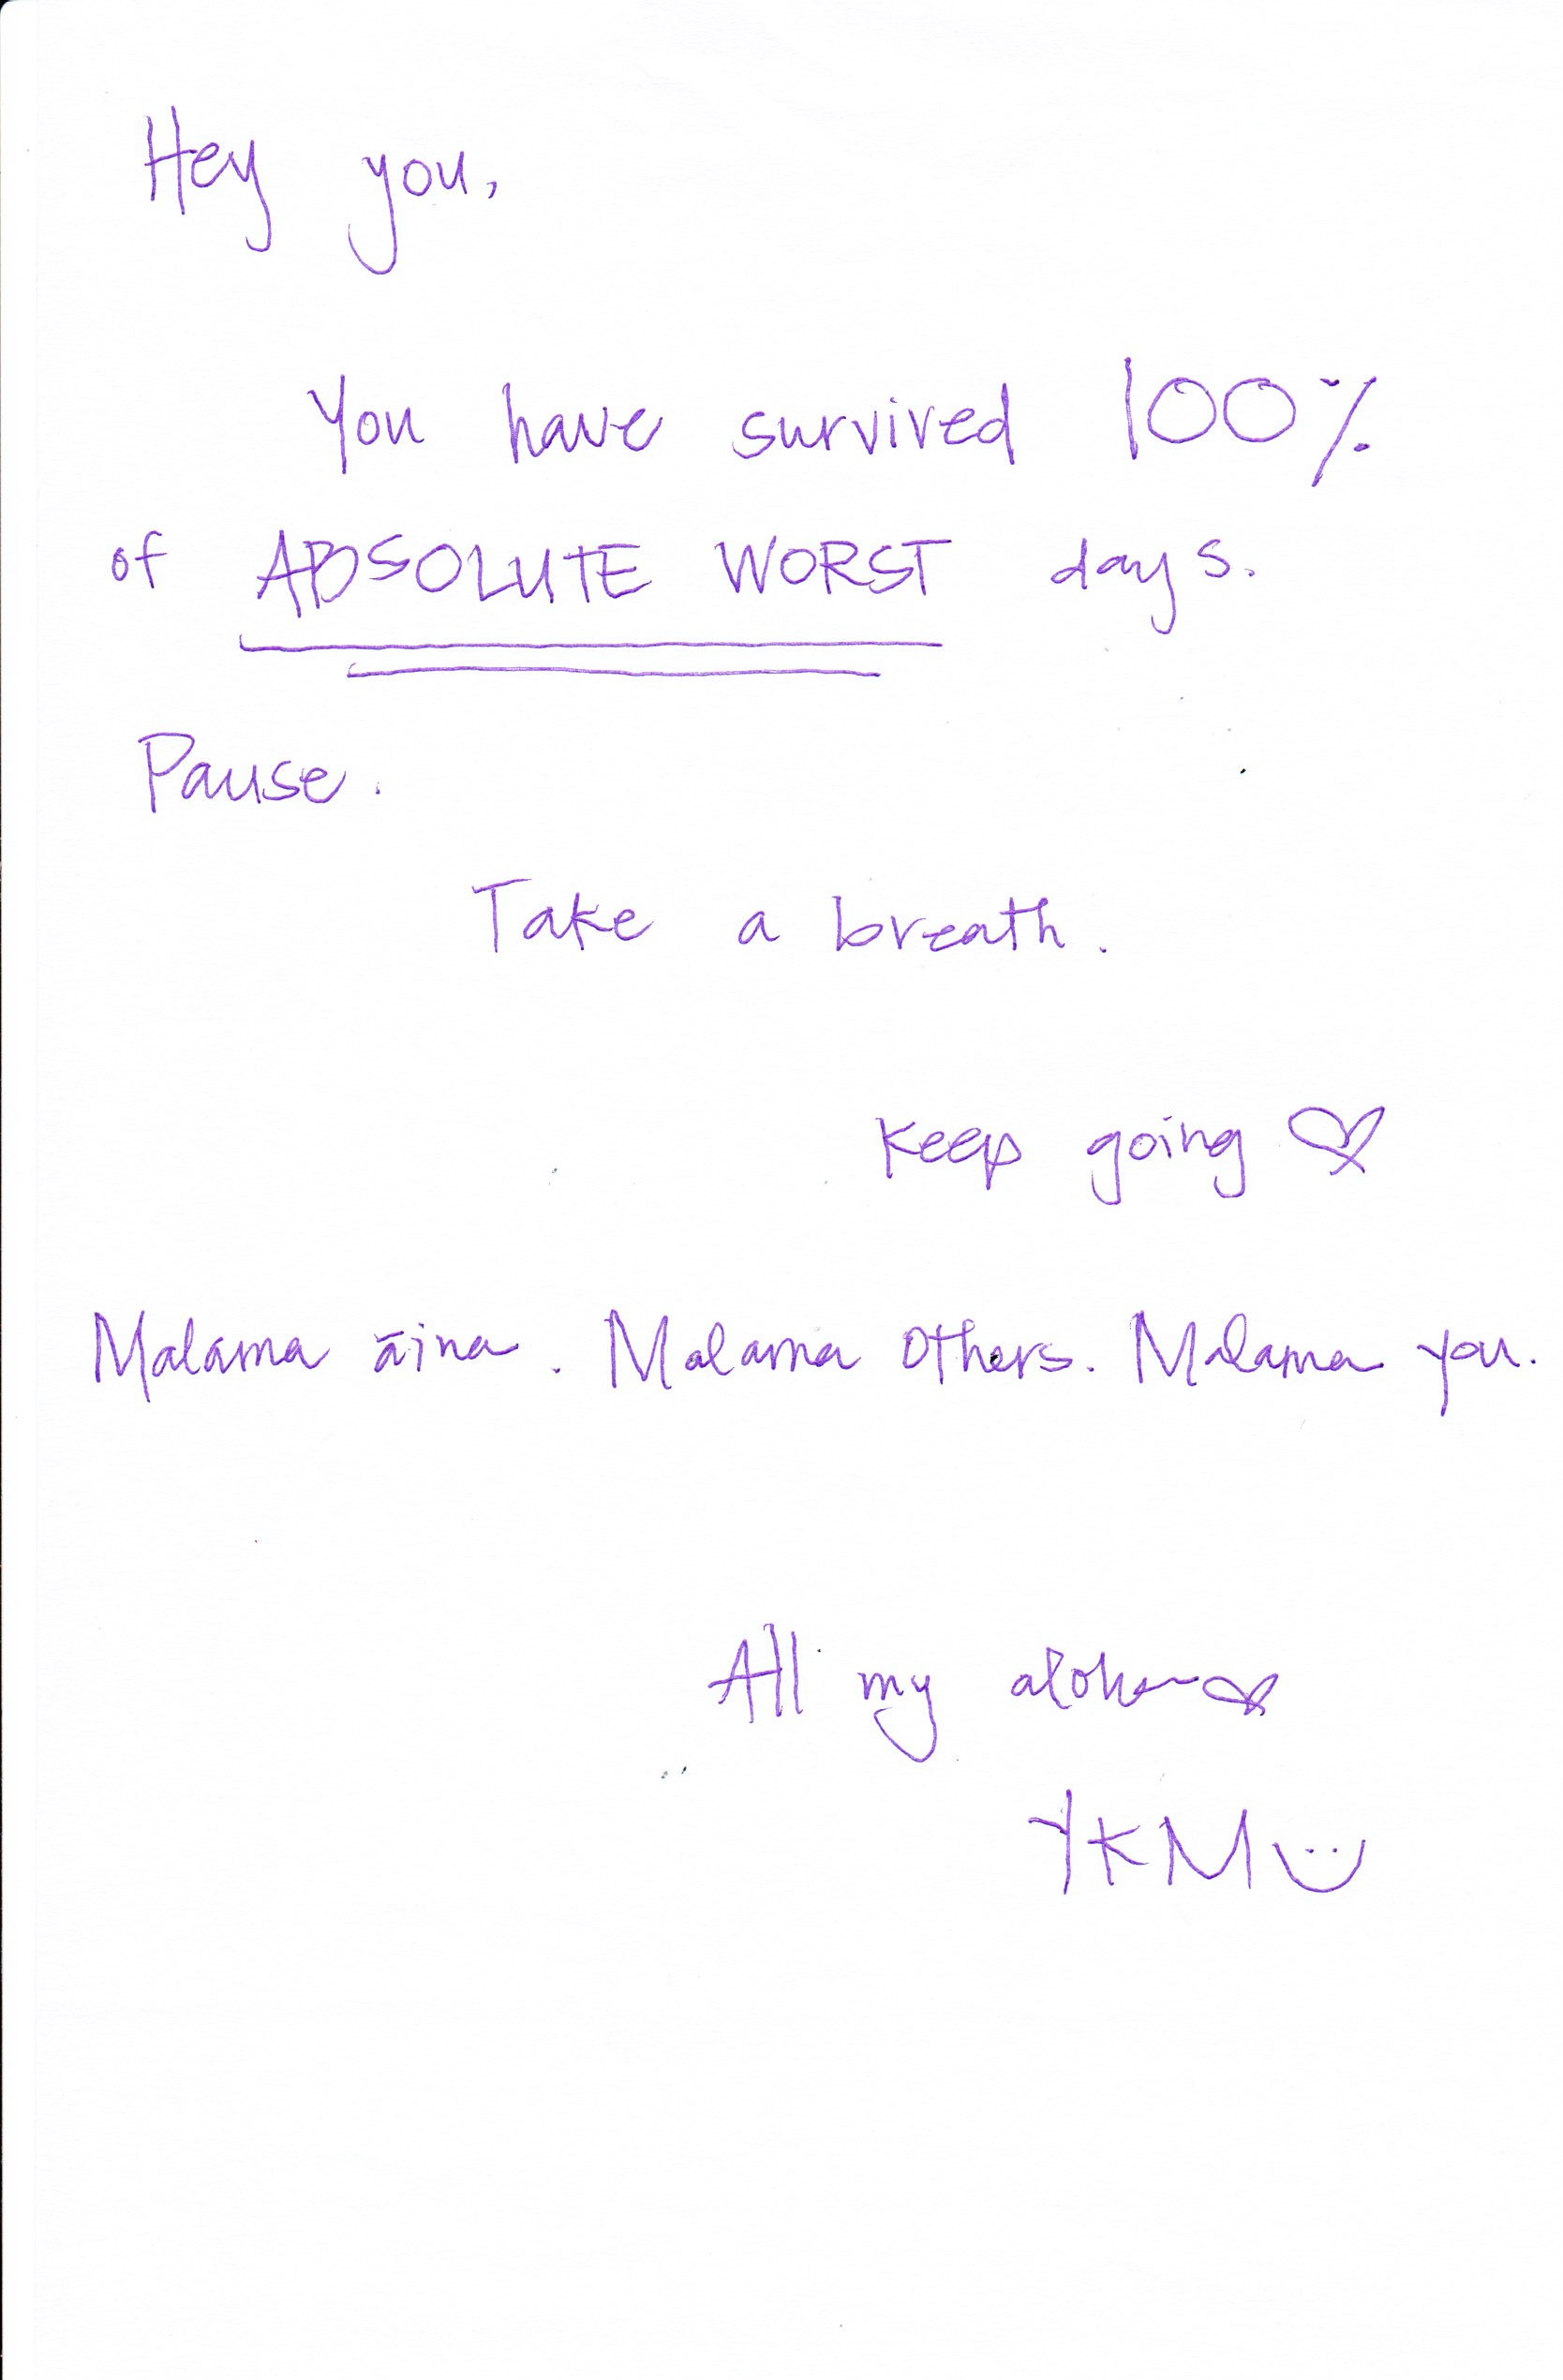 Hey you,
You have survived 100%
of ABSOLUTE WORST days.
Pause.
Take a breath.
Keep going ♡
Malama āina. Malama others. Malama you.
All my aloha ♡
YKM :)